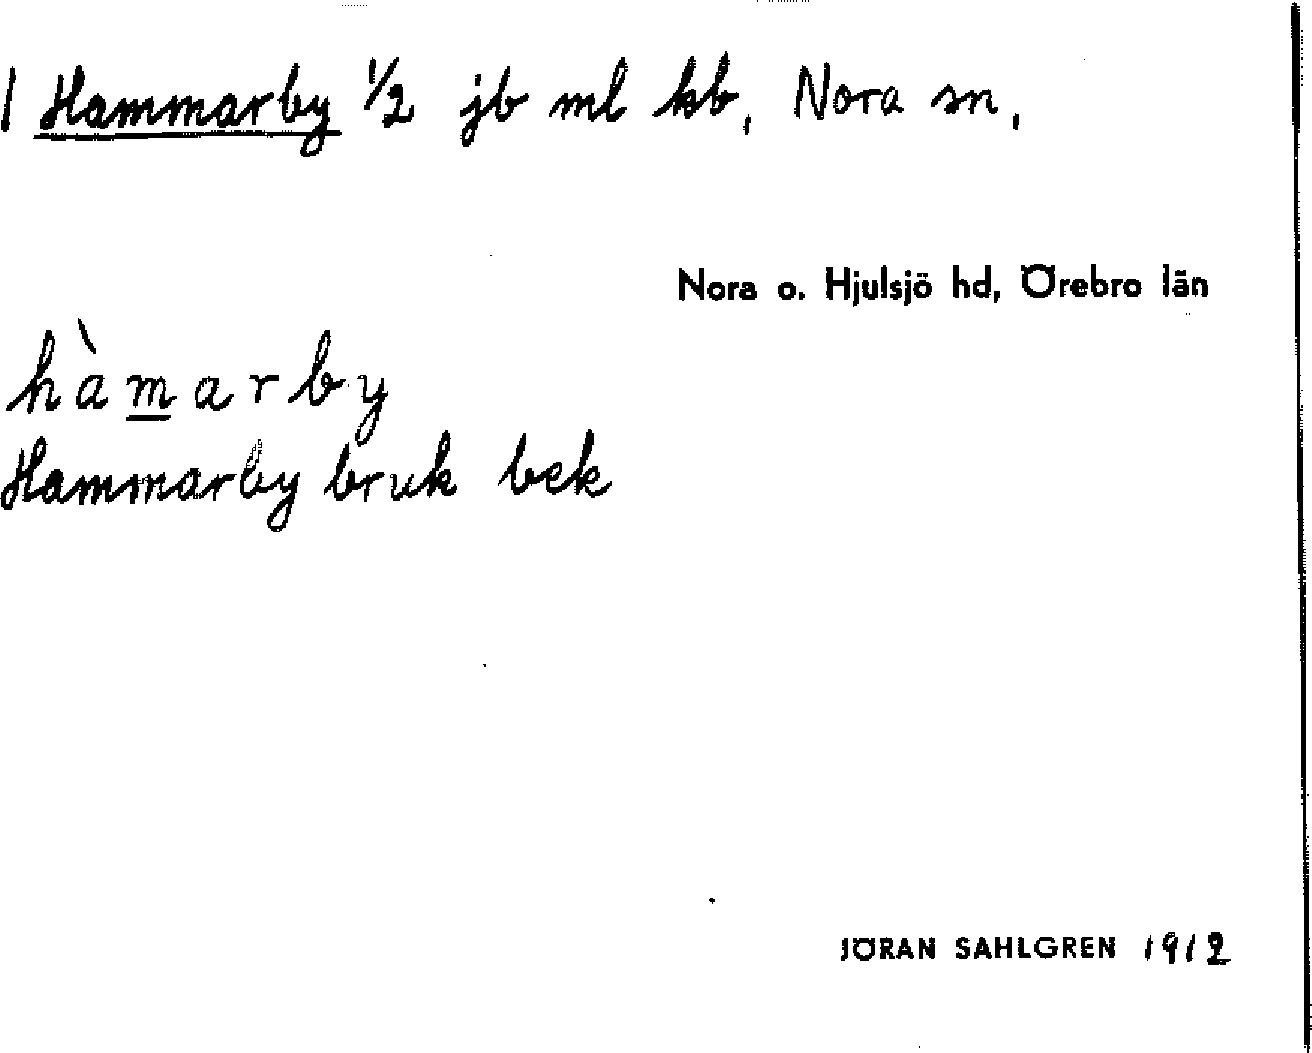 1 Hammarby 1/2 jb ml kb, Nora sn,
Nora o. Hjulsjö hd, Örebro län
hàmarby
Hammarby bruk bek
JÖRAN SAHLGREN 1912